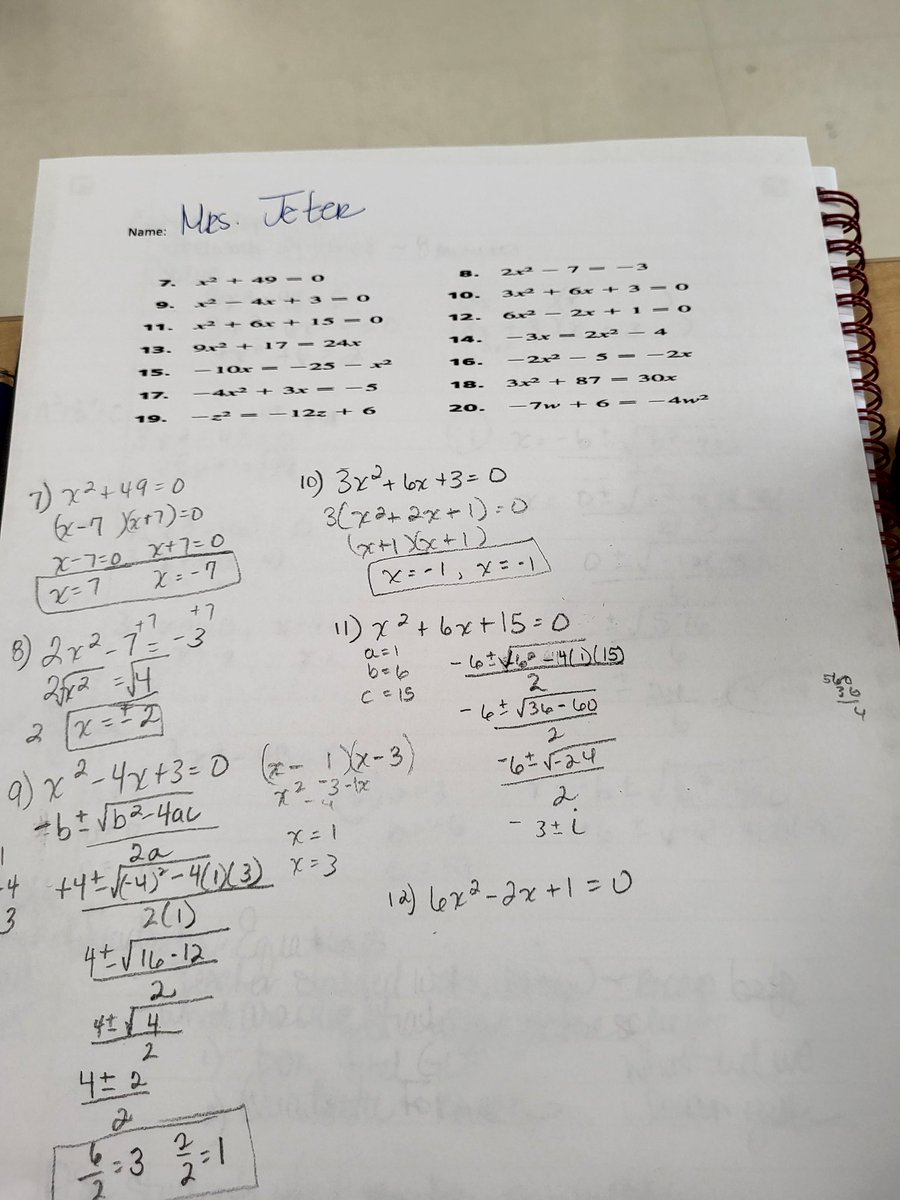 Name: Mrs. Jeter
7. x² + 49 = 0
8. 2x² − 7 = −3
9. x² − 4x + 3 = 0
10. 3x² + 6x + 3 = 0
11. x² + 6x + 15 = 0
12. 6x² − 2x + 1 = 0
13. 9x² + 17 = 24x
14. −3x = 2x² − 4
15. −10x = −25 − x²
16. −2x² − 5 = −2x
17. −4x² + 3x = −5
18. 3x² + 87 = 30x
19. −z² = −12z + 6
20. −7w + 6 = −4w²
7) x² + 49 = 0
(x-7)(x+7)=0
x-7=0 x+7=0
x=7 x=-7
8) 2x² - 7 = -3
+7 +7
2√x² = √4
2 x = ± 2
9) x² - 4x + 3 = 0
-b ± √b²-4ac
2a
1
-4
3
+4 ± √(-4)² - 4(1)(3)
2(1)
4 ± √16-12
2
4 ± √4
2
4 ± 2
2
6/2 = 3 2/2 = 1
(x - 1)(x - 3)
x² -3 -1x
-4
x = 1
x = 3
10) 3x² + 6x + 3 = 0
3(x² + 2x + 1) = 0
(x+1)(x+1)
x = -1, x = -1
11) x² + 6x + 15 = 0
a = 1
b = 6
c = 15
-6 ± √6² - 4(1)(15)
2
-6 ± √36 - 60
2
-6 ± √-24
2
- 3 ± i
12) 6x² - 2x + 1 = 0
36
4